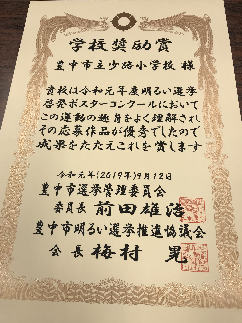 学校奨励賞
豊中市立少路小学校 様
貴校は令和元年度明るい選挙
啓発ポスターコンクールにおいて
この運動の趣旨をよく理解され
その応募作品が優秀でしたので
成果をたたえこれを賞します
令和元年(2019年)9月12日
豊中市選挙管理委員会
委員長 前田雄治
豊中市明るい選挙推進協議会
会長 梅村 晃